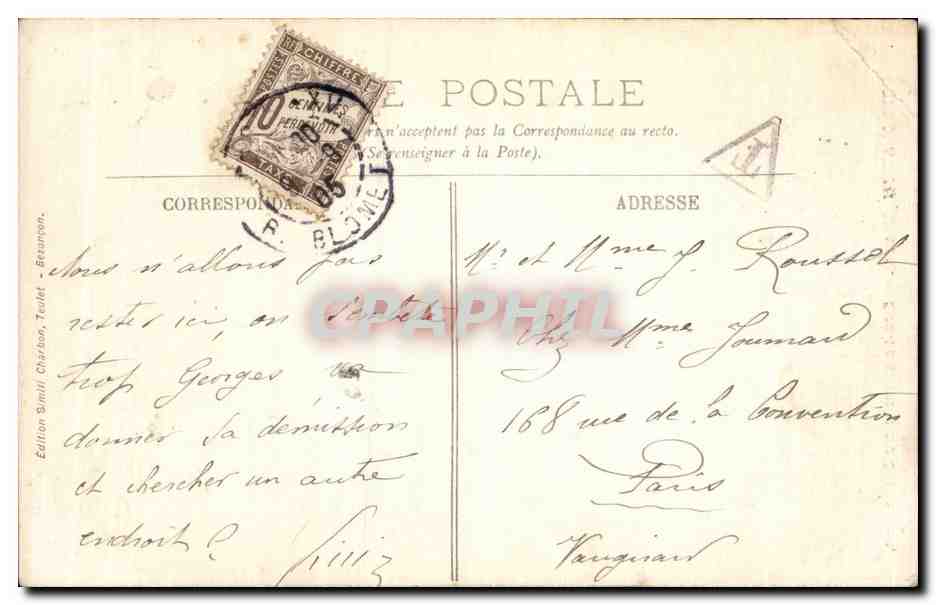 CHIFFRE
POSTES
10 CENTIMES
PERCEVOIR
TAXE
05
R. BLOMET
E POSTALE
n'acceptent pas la Correspondance au recto.
(Se renseigner à la Poste).
T
CORRESPONDA
ADRESSE
Édition Simili Charbon, Teulet - Besançon.
Nous n'allons pas
rester ici, on s'embête
trop Georges va
donner sa démission
et chercher un autre
endroit ?
Mr. et Mme J. Roussel
Chez Mme Joumard
168 rue de la Convention
Paris
Vaugirard
CPAPHIL